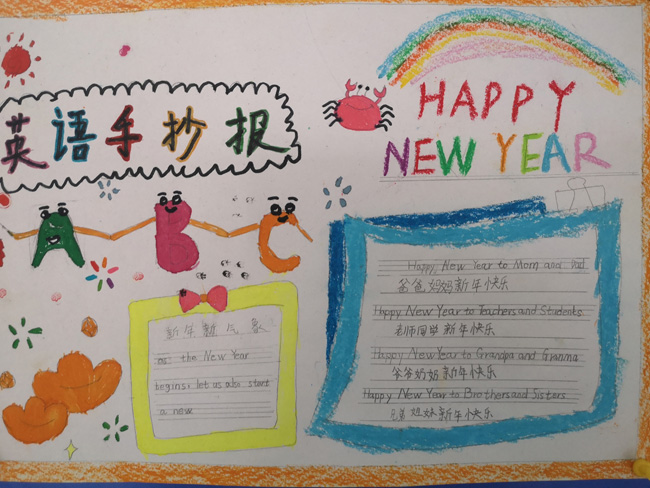 英语手抄报
HAPPY
NEW YEAR
A B C
新年
as the New Year
begins, let us also start
a new
Happy New Year to Mom and Dad
爸爸妈妈新年快乐
Happy New Year to Teachers and Students
老师同学新年快乐
Happy New Year to Grandpa and Granma
爷爷奶奶新年快乐
Happy New Year to Brothers and Sisters
兄弟姐妹新年快乐